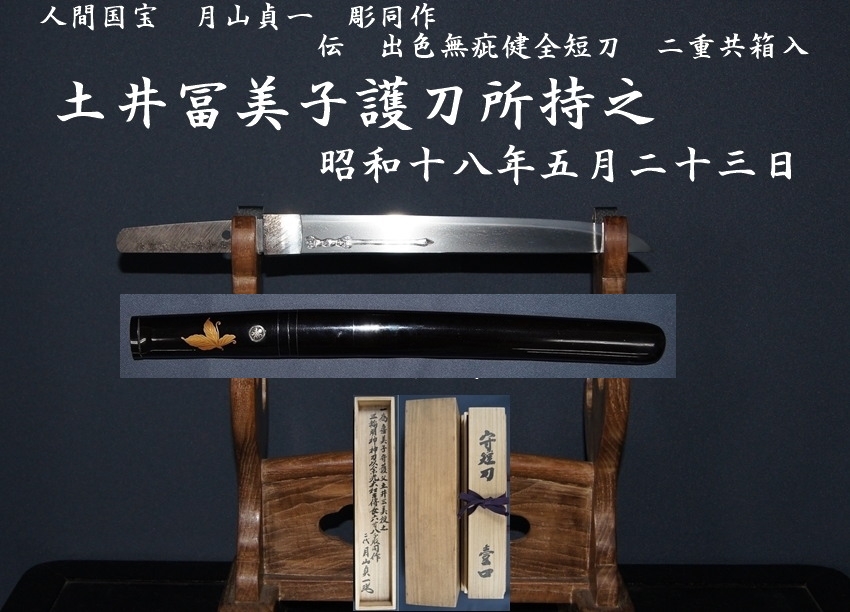 人間国宝　月山貞一　彫同作
伝　出色無疵健全短刀　二重共箱入
土井冨美子護刀所持之
昭和十八年五月二十三日
守短刀　壹口
二代月山貞一